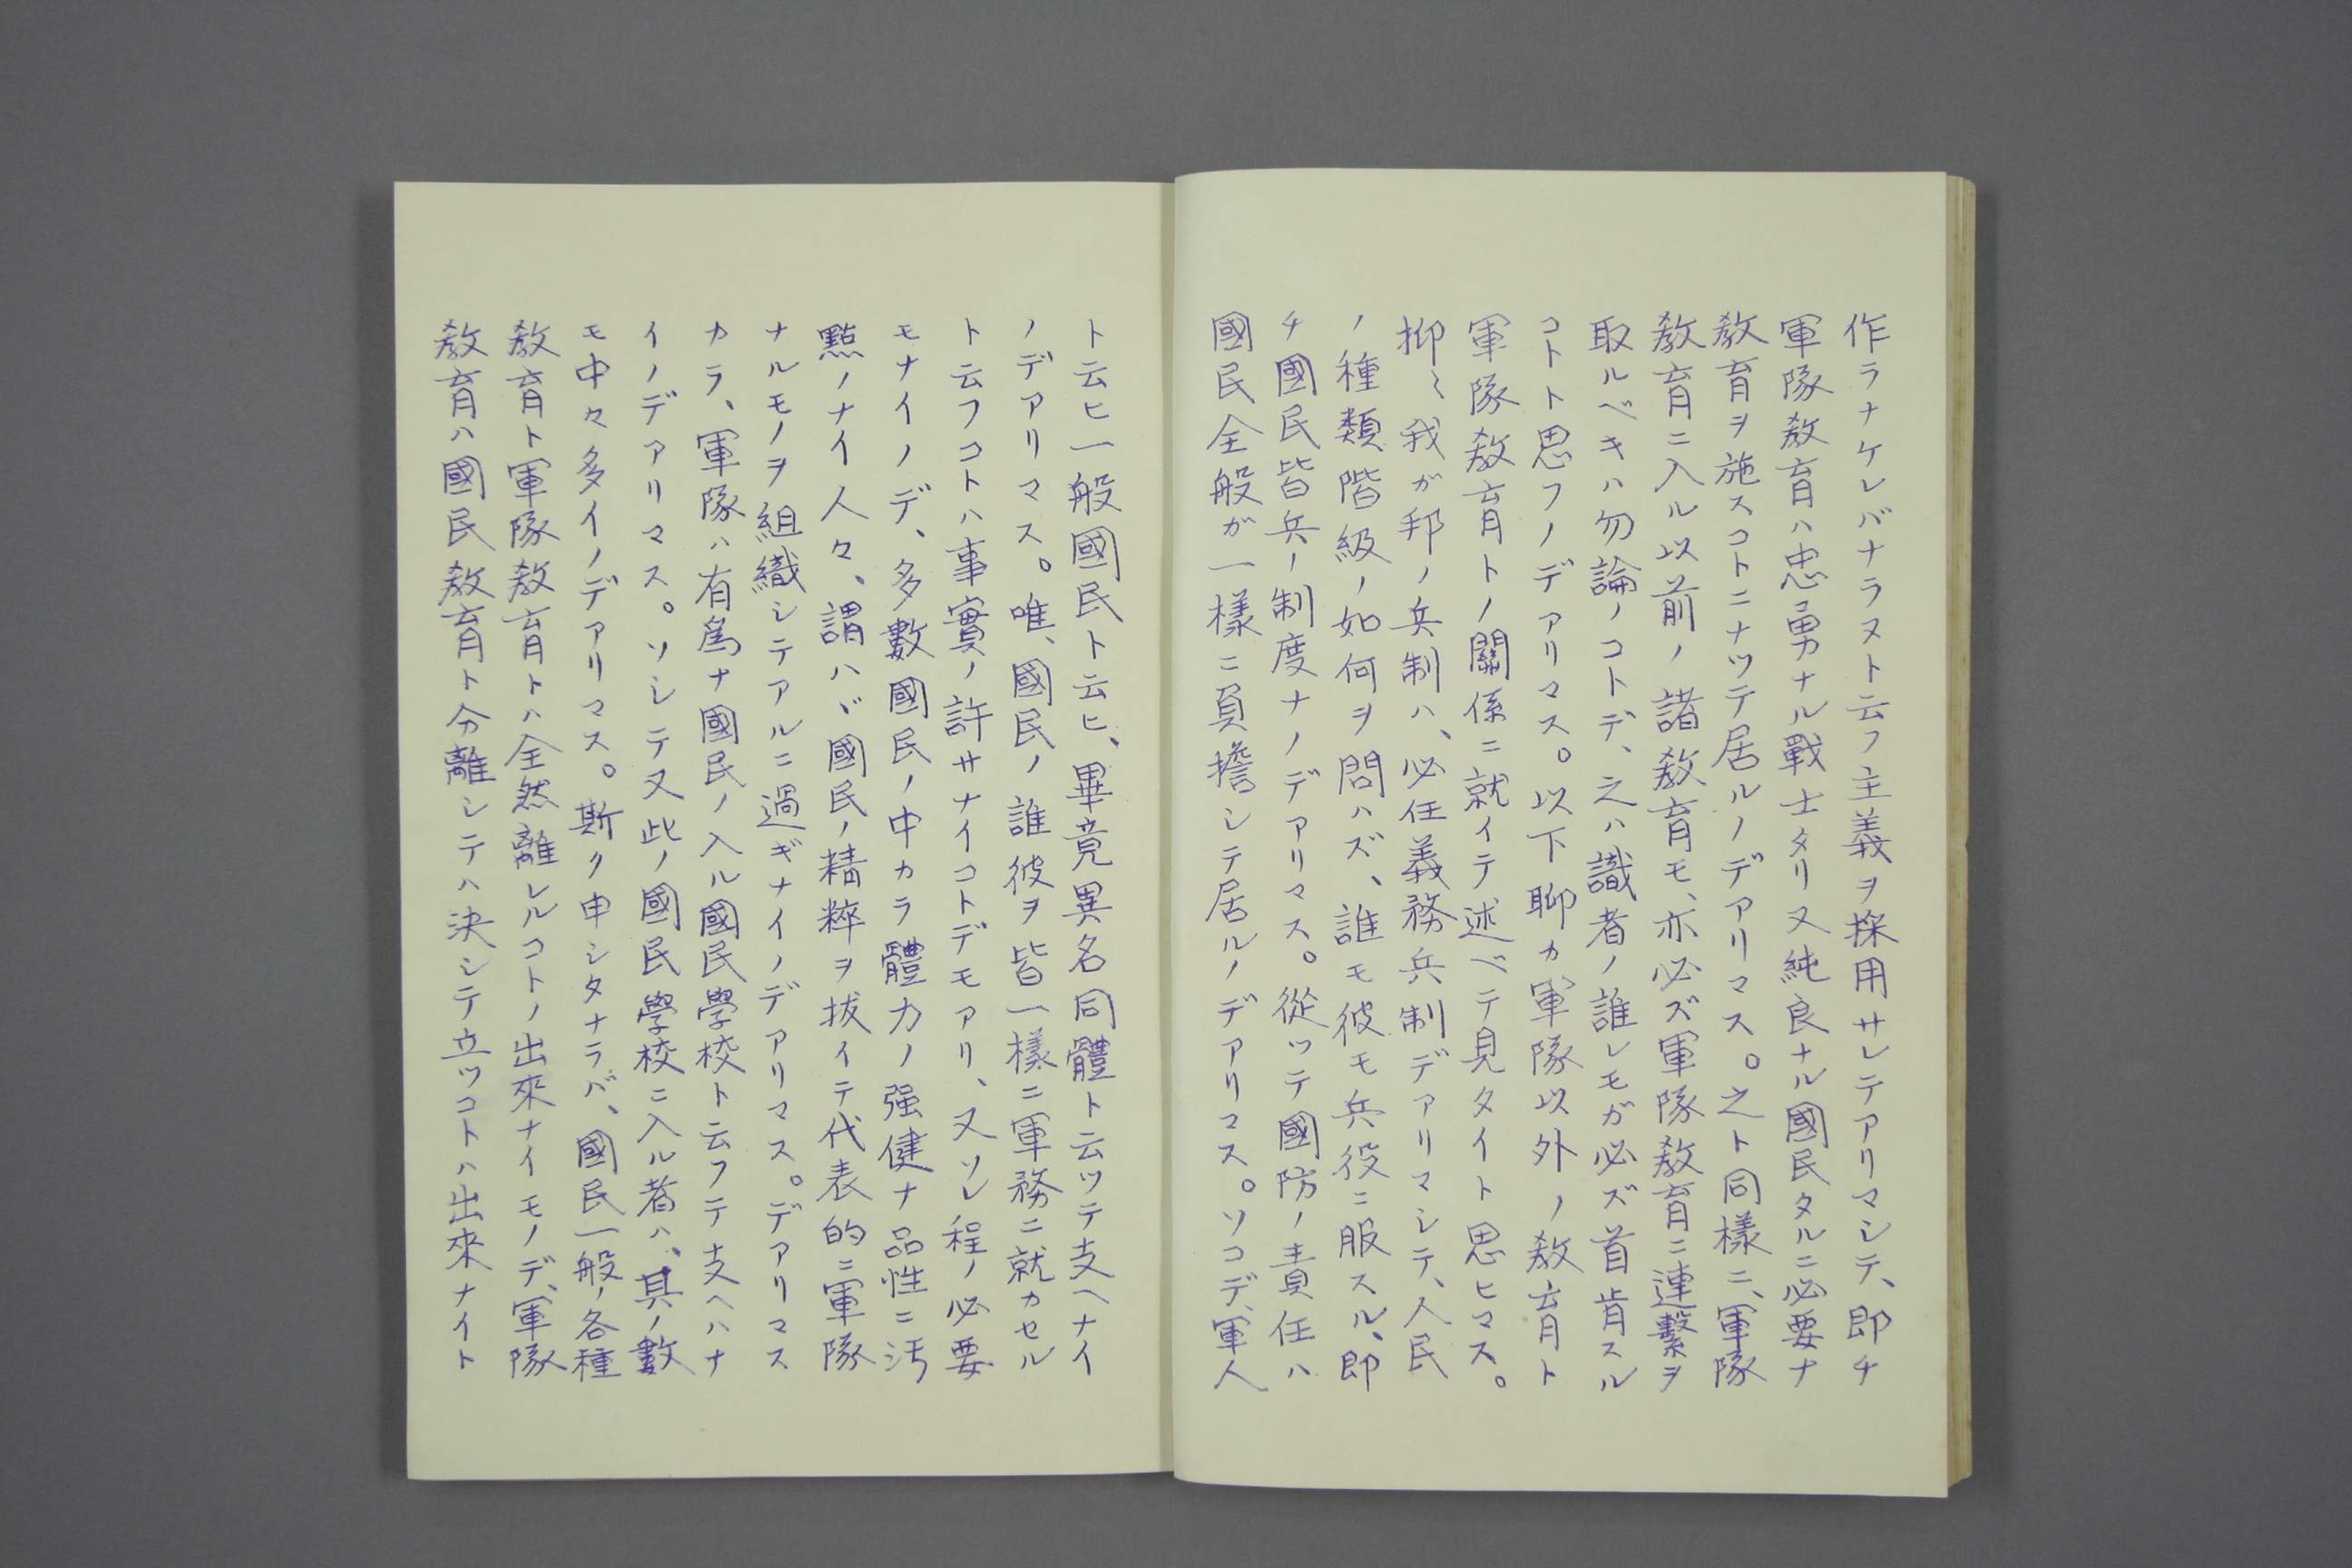 作ラナケレバナラヌト云フ主義ヲ採用サレテアリマシテ、即チ
軍隊敎育ハ忠勇ナル戰士タリ又純良ナル國民タルニ必要ナ
敎育ヲ施スコトニナツテ居ルノデアリマス。之ト同樣ニ、軍隊
敎育ニ入ル以前ノ諸敎育モ、亦必ズ軍隊敎育ニ連繫ヲ
取ルベキハ勿論ノコトデ、之ハ識者ノ誰レモガ必ズ首肯スル
コトト思フノデアリマス。以下聊カ軍隊以外ノ敎育ト
軍隊敎育トノ關係ニ就イテ述ベテ見タイト思ヒマス。
抑〻我ガ邦ノ兵制ハ、必任義務兵制デアリマシテ、人民
ノ種類階級ノ如何ヲ問ハズ、誰モ彼モ兵役ニ服スル、即
チ國民皆兵ノ制度ナノデアリマス。從ツテ國防ノ責任ハ
國民全般ガ一樣ニ負擔シテ居ルノデアリマス。ソコデ、軍人
ト云ヒ一般國民ト云ヒ、畢竟異名同體ト云ツテ支ヘナイ
ノデアリマス。唯、國民ノ誰彼ヲ皆一樣ニ軍務ニ就カセル
ト云フコトハ事實ノ許サナイコトデモアリ、又ソレ程ノ必要
モナイノデ、多數國民ノ中カラ體力ノ强健ナ品性ニ汚
點ノナイ人々、謂ハヾ國民ノ精粹ヲ拔イテ代表的ニ軍隊
ナルモノヲ組織シテアルニ過ギナイノデアリマス。デアリマス
カラ、軍隊ハ有爲ナ國民ノ入ル國民學校ト云フテ支ヘハナ
イノデアリマス。ソシテ又此ノ國民學校ニ入ル者ハ、其ノ數
モ中々多イノデアリマス。斯ク申シタナラバ、國民一般ノ各種
敎育ト軍隊敎育トハ全然離レルコトノ出來ナイモノデ、軍隊
敎育ハ國民敎育ト分離シテハ決シテ立ツコトハ出來ナイト